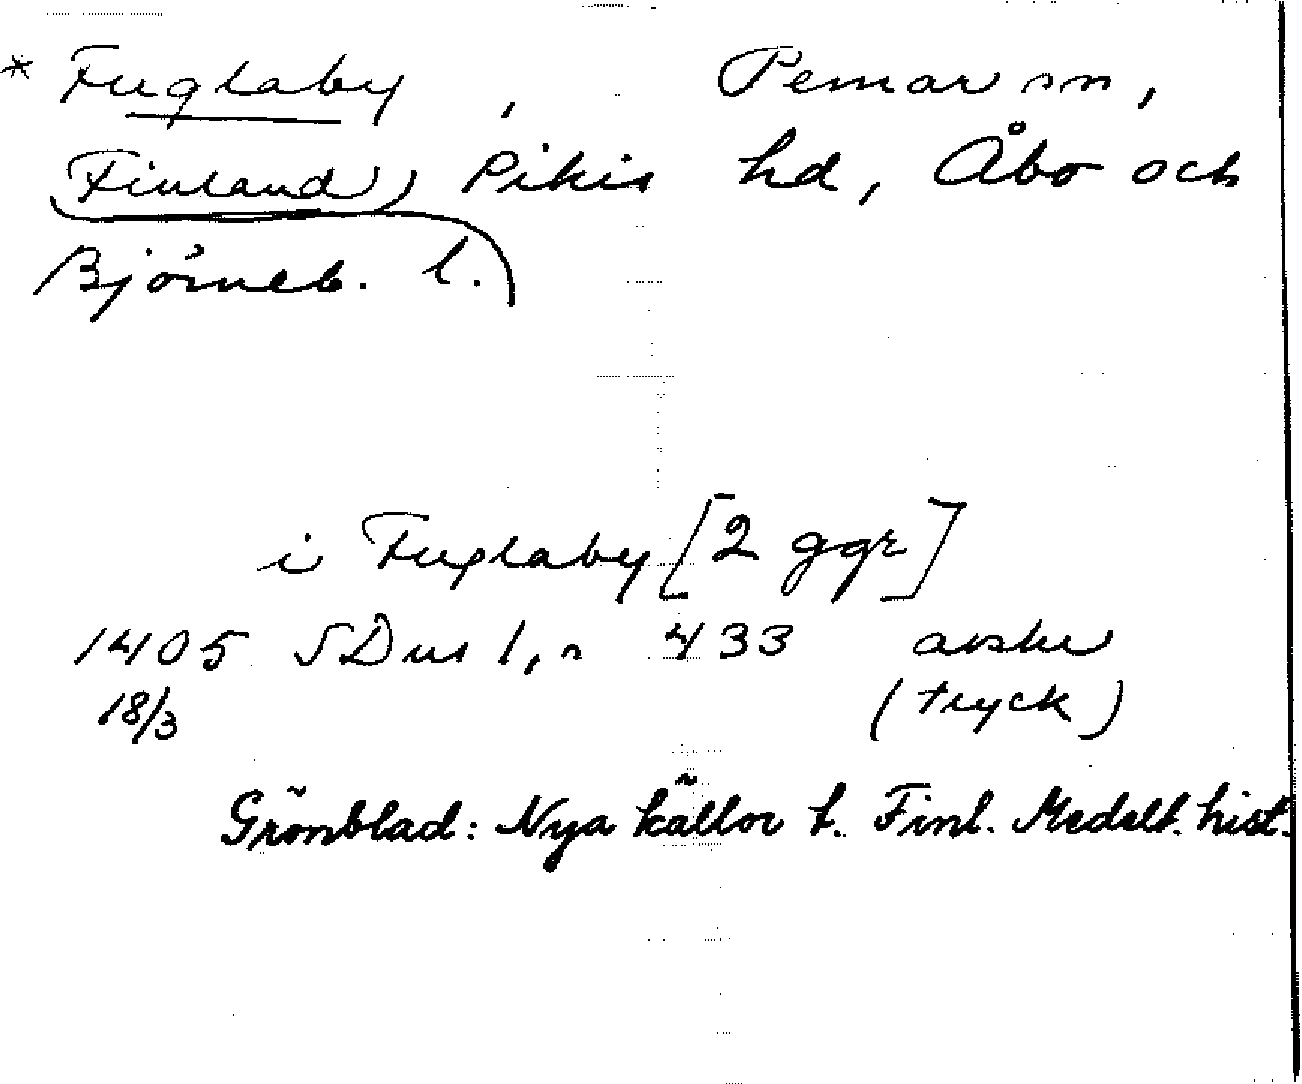 * Fuglaby , Pemar sn,
Finland, Pikis hd, Åbo och
Björneb. l.
i Fuglaby [2 ggr]
1405 SDns 1, n 433 avskr
18/3 (tryck)
Grönblad: Nya källor t. Finl. Medelt. hist.